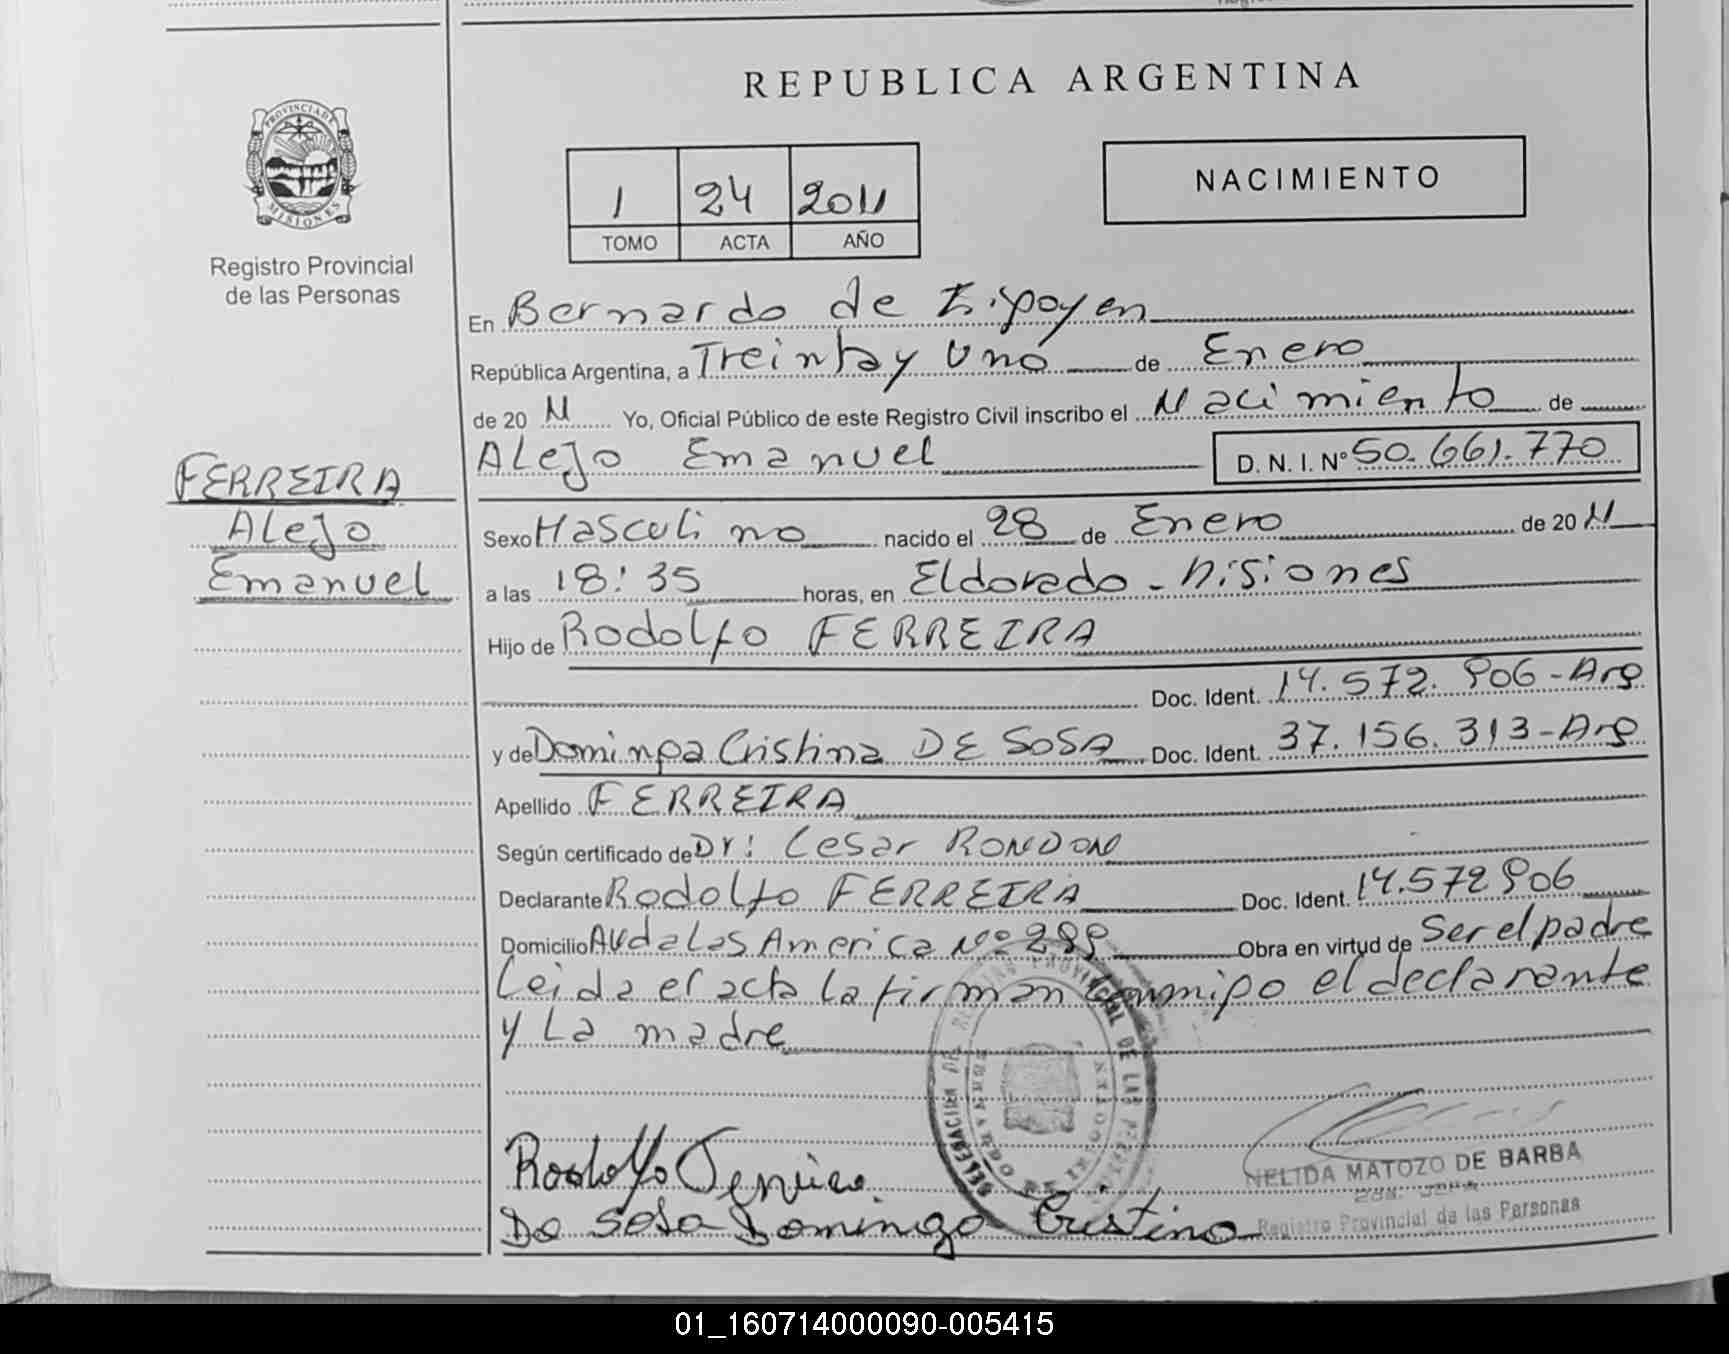 REPUBLICA ARGENTINA
PROVINCIA DE MISIONES
Registro Provincial
de las Personas
1 24 2011
TOMO ACTA AÑO
NACIMIENTO
En Bernardo de Irigoyen
República Argentina, a Treinta y Uno de Enero
de 20 11 Yo, Oficial Público de este Registro Civil inscribo el Nacimiento de
Alejo Emanuel D. N. I. N° 50.661.770
FERREIRA
Alejo
Emanuel
Sexo Masculino nacido el 28 de Enero de 20 11
a las 18:35 horas, en Eldorado - Misiones
Hijo de Rodolfo FERREIRA
Doc. Ident. 14.572.906-Arg
y de Dominga Cristina DE SOSA Doc. Ident. 37.156.313-Arg
Apellido FERREIRA
Según certificado de Dr: Cesar RONDON
Declarante Rodolfo FERREIRA Doc. Ident. 14.572906
Domicilio Avda Las America Nº 299 Obra en virtud de Ser el padre
Leida el acta la firman conmigo el declarante
y La madre
DELEGACION DEL REGISTRO PROVINCIAL DE LAS PERSONAS
Rodolfo Ferreira.
De Sosa Dominga Cristina
NELIDA MATOZO DE BARBA
Registro Provincial de las Personas
01_160714000090-005415